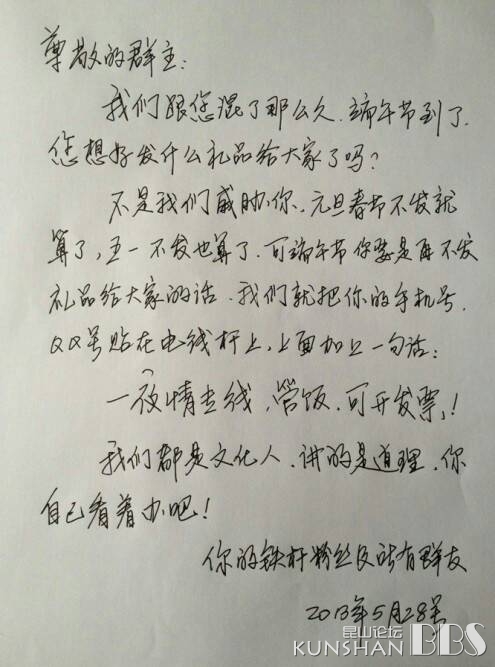 尊敬的群主：
我们跟您混了那么久，端午节到了，
您想好发什么礼品给大家了吗？
不是我们威胁你，元旦春节不发就
算了，五一不发也算了，可端午节你要是再不发
礼品给大家的话，我们就把你的手机号，
QQ号贴在电线杆上，上面加上一句话：
一夜情专线，管饭，可开发票！
我们都是文化人，讲的是道理，你
自己看着办吧！
你的铁杆粉丝及所有群友
2013年5月28号
昆山论坛
KUNSHAN BBS